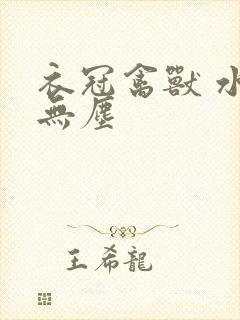 衣冠禽獸 水
無塵
王希龍